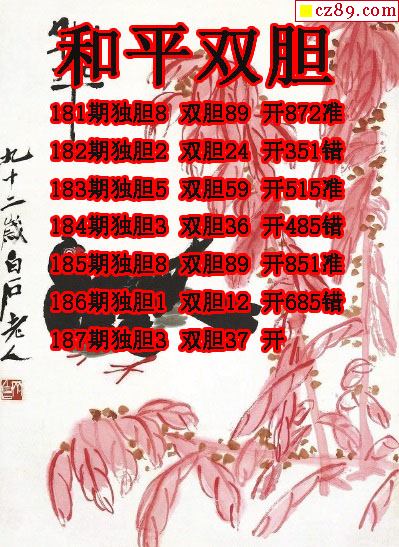 cz89.com
和平双胆
181期独胆8 双胆89 开872准
182期独胆2 双胆24 开351错
183期独胆5 双胆59 开515准
184期独胆3 双胆36 开485错
185期独胆8 双胆89 开851准
186期独胆1 双胆12 开685错
187期独胆3 双胆37 开
九十二岁白石老人